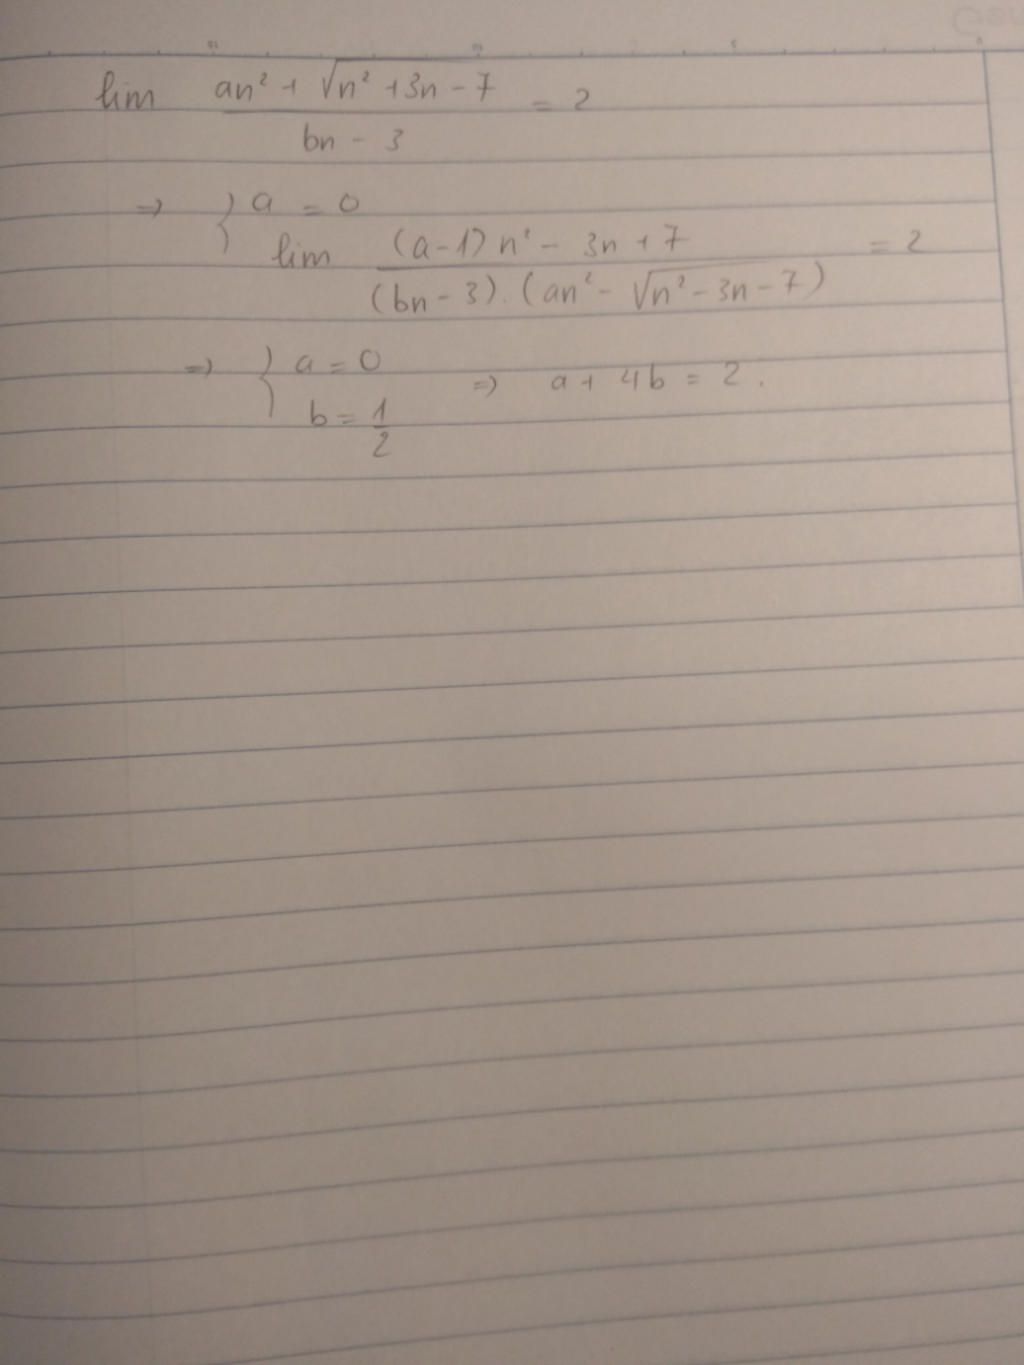 lim (an² + √(n² + 3n - 7)) / (bn - 3) = 2
⇒ { a = 0
lim ((a-1)n² - 3n + 7) / ((bn - 3).(an² - √(n² - 3n - 7))) = 2
⇒ { a = 0
b = 1/2 ⇒ a + 4b = 2.